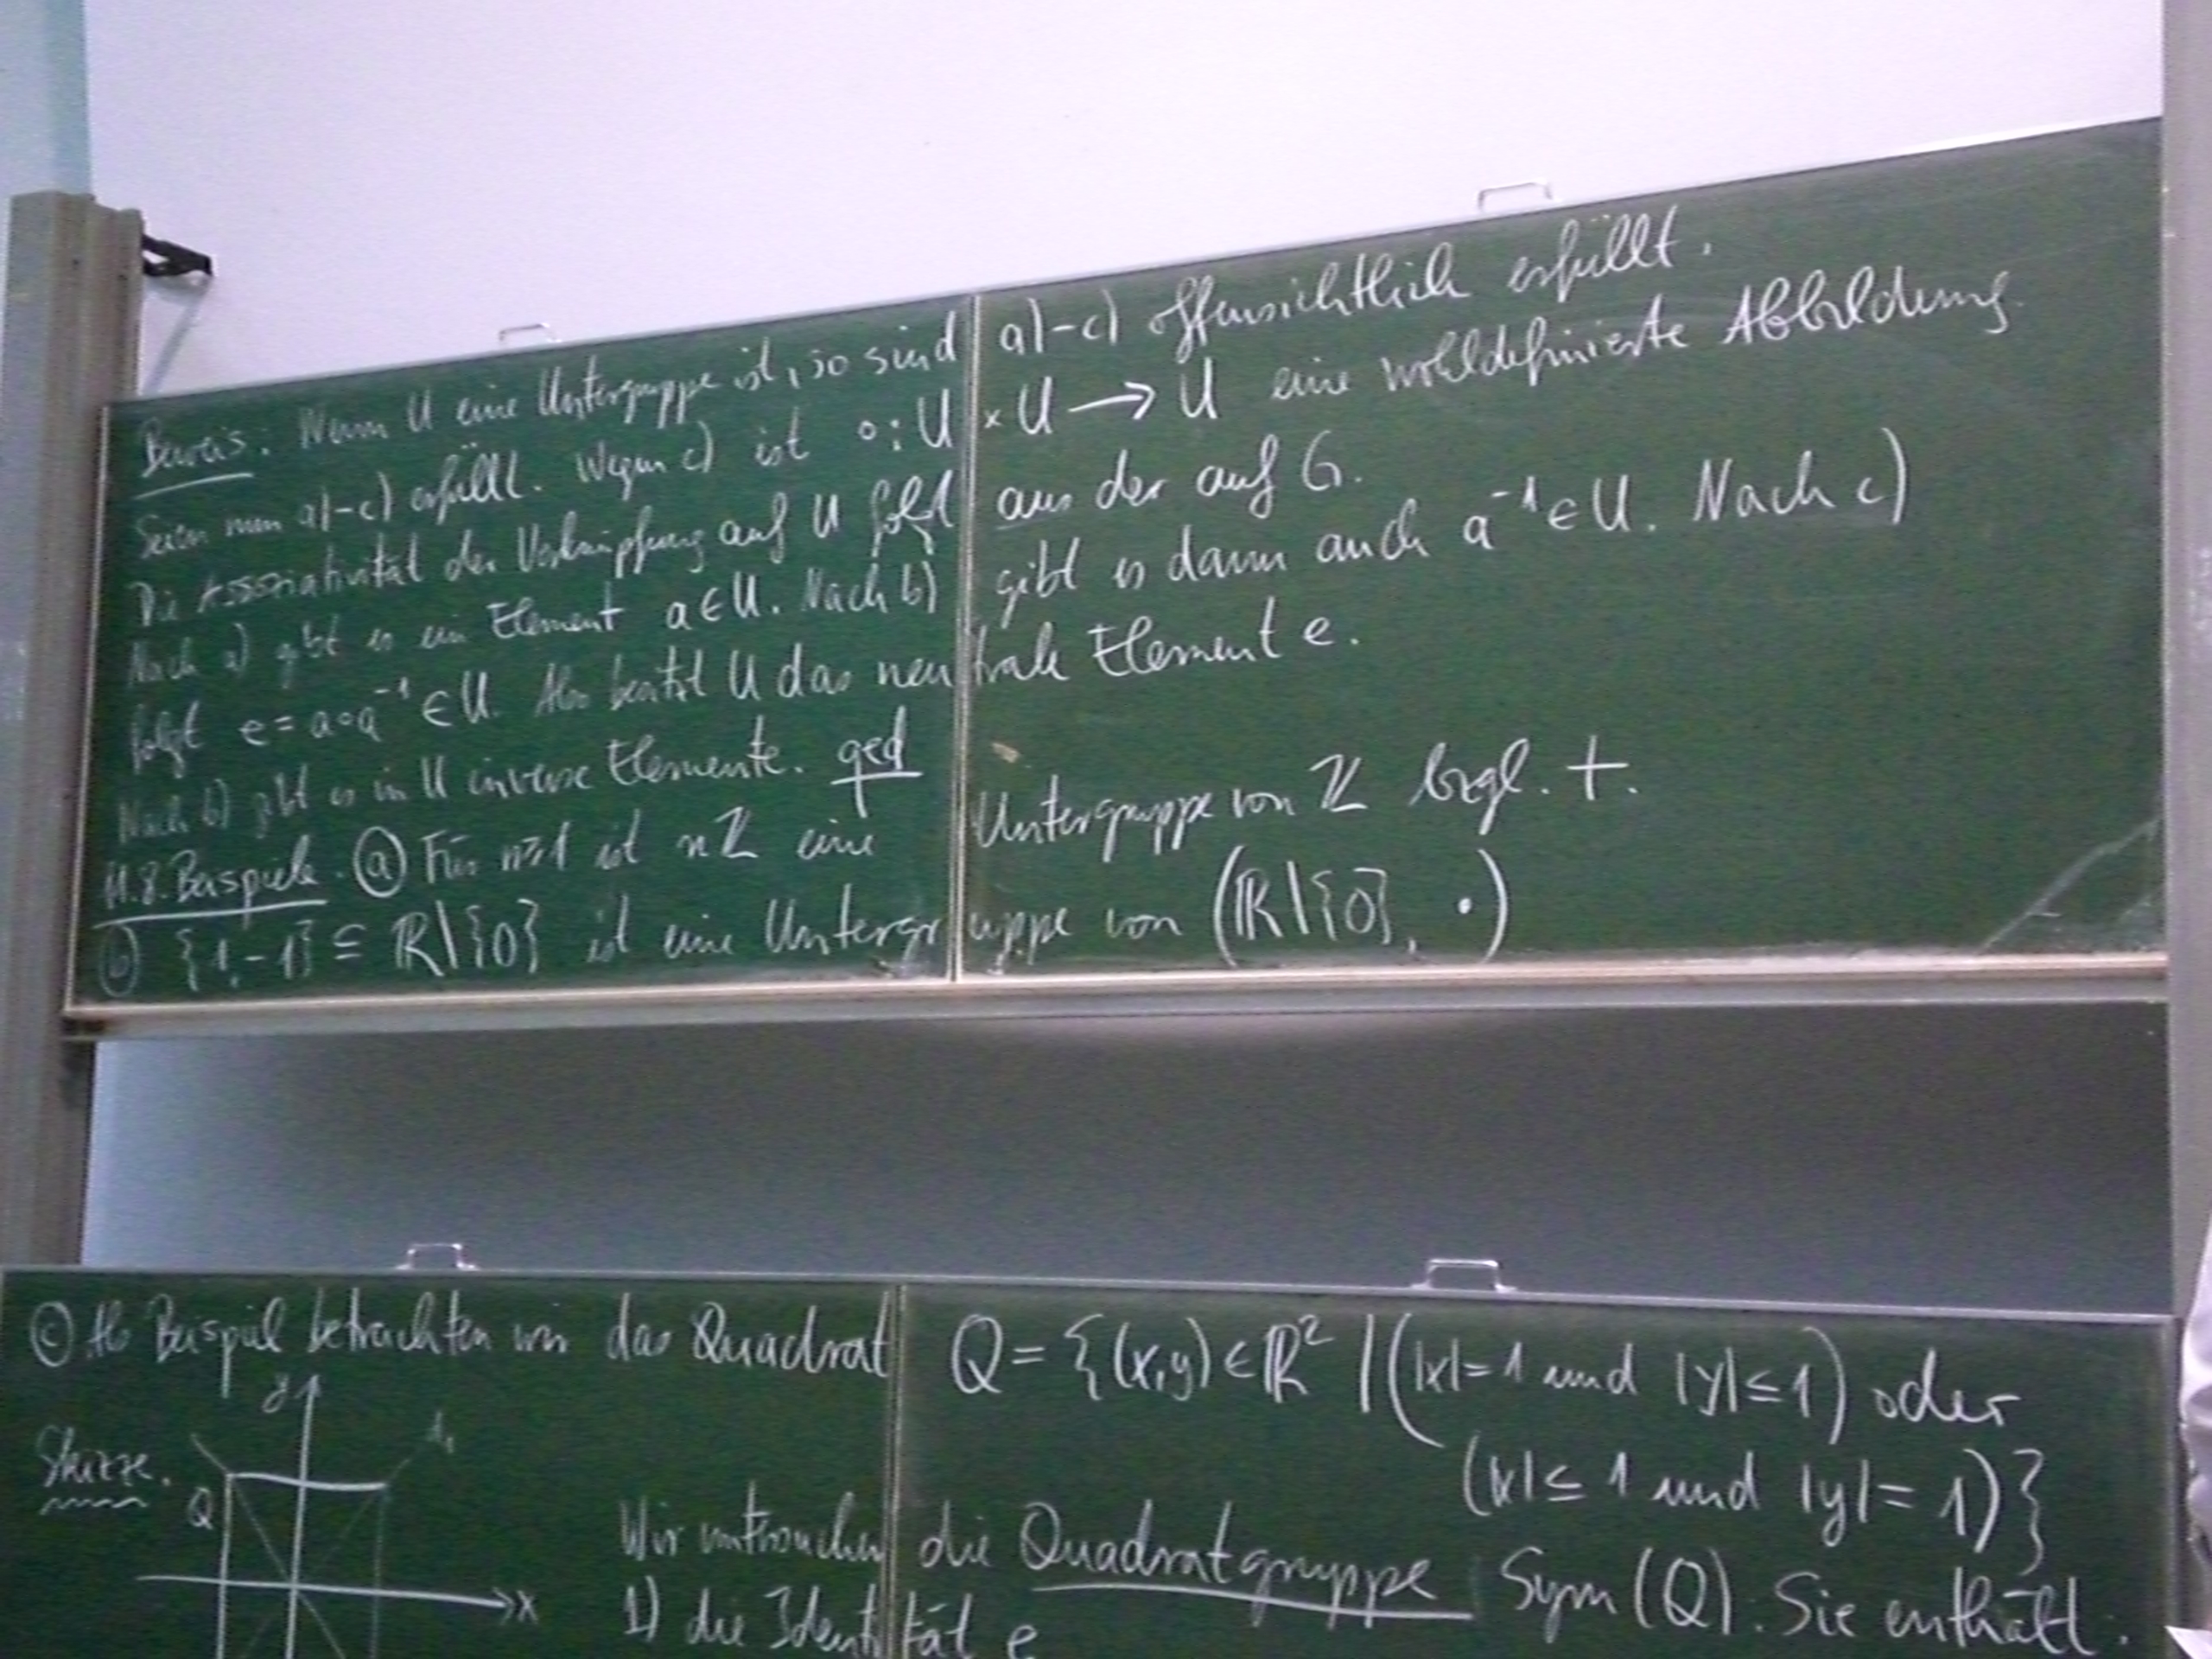 Beweis: Wenn U eine Untergruppe ist, so sind a)-c) offensichtlich erfüllt.
Seien nun a)-c) erfüllt. Wegen c) ist ∘: U × U → U eine wohldefinierte Abbildung.
Die Assoziativität der Verknüpfung auf U folgt aus der auf G.
Nach a) gibt es ein Element a ∈ U. Nach b) gibt es dann auch a⁻¹ ∈ U. Nach c)
folgt e = a∘a⁻¹ ∈ U. Also besitzt U das neutrale Element e.
Nach b) gibt es in U inverse Elemente. qed
11.8. Beispiele. (a) Für n≥1 ist nℤ eine Untergruppe von ℤ bzgl. +.
(b) {1,-1} ⊆ ℝ\{0} ist eine Untergruppe von (ℝ\{0}, ·)
(c) Als Beispiel betrachten wir das Quadrat Q = {(x,y) ∈ ℝ² | (|x|=1 und |y|≤1) oder
(|x|≤1 und |y|=1)}
Skizze.
y
Q
x
Wir untersuchen die Quadratgruppe Sym(Q). Sie enthält:
1) die Identität e